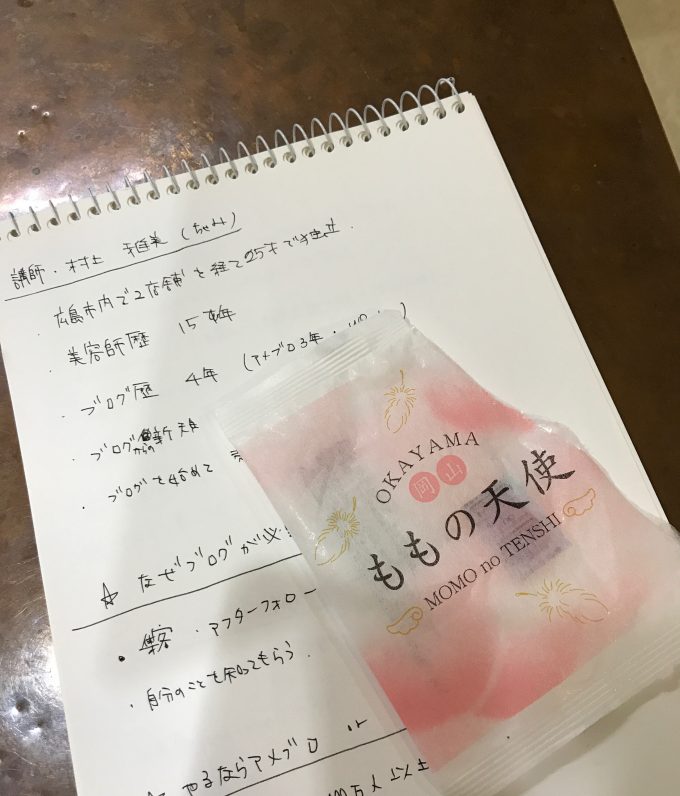 講師・村上 雅美(ちゃみ)
・広島市内で2店舗を経て25才で独立.
・美容師歴 15年
・ブログ歴 4年 (アメブロ3年・
・ブログからの新規
・ブログを始めて
☆ なぜブログが必
・ アフターフォロー
・自分のことを知ってもらう.
☆ やるならアメブロ or
万人以上
OKAYAMA
岡山
ももの天使
MOMO no TENSHI